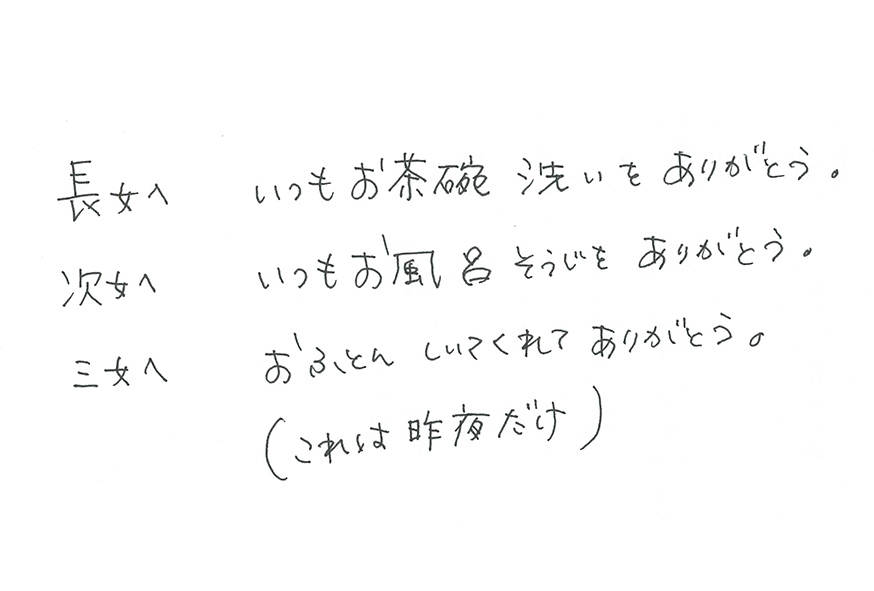 長女へ いつもお茶碗洗いをありがとう。
次女へ いつもお風呂そうじをありがとう。
三女へ おふとんしいてくれてありがとう。
(これは昨夜だけ)